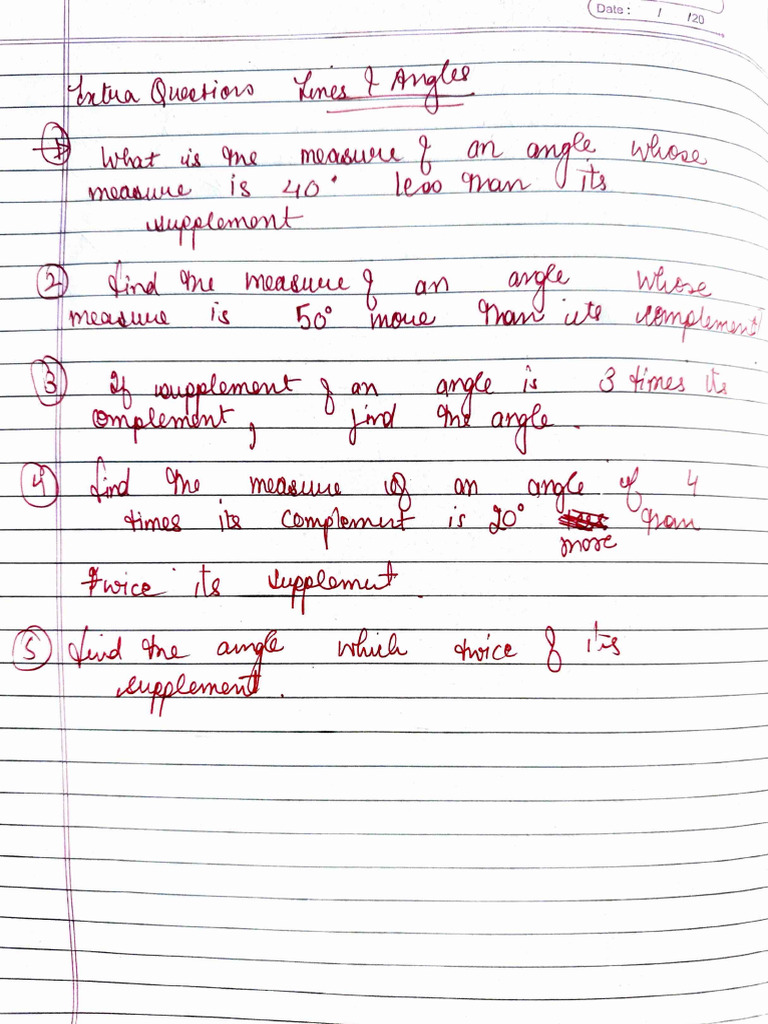 Date : / /20
Extra Questions Lines & Angles
1 What is the measure of an angle whose
measure is 40° less than its
supplement
2 find the measure of an angle whose
measure is 50° more than its complement
3 If supplement of an angle is 3 times its
complement, find the angle.
4 find the measure of an angle if 4
times its complement is 20° more than
twice its supplement.
5 find the angle which twice of it's
supplement.